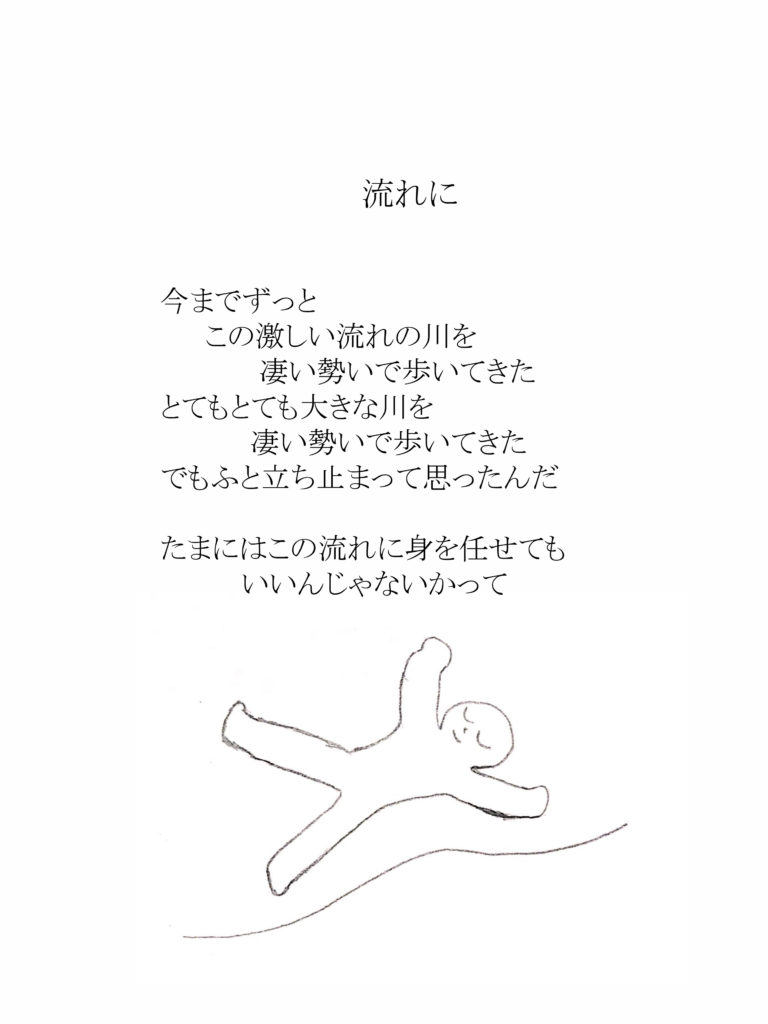 流れに
今までずっと
この激しい流れの川を
凄い勢いで歩いてきた
とてもとても大きな川を
凄い勢いで歩いてきた
でもふと立ち止まって思ったんだ
たまにはこの流れに身を任せても
いいんじゃないかって